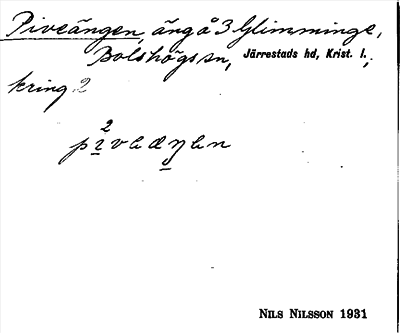 Piveängen, äng å 3 Glimminge,
Bolshögs sn, Järrestads hd, Krist. l.,
kring 2
2
pɪvɐæŋɐn
NILS NILSSON 1931